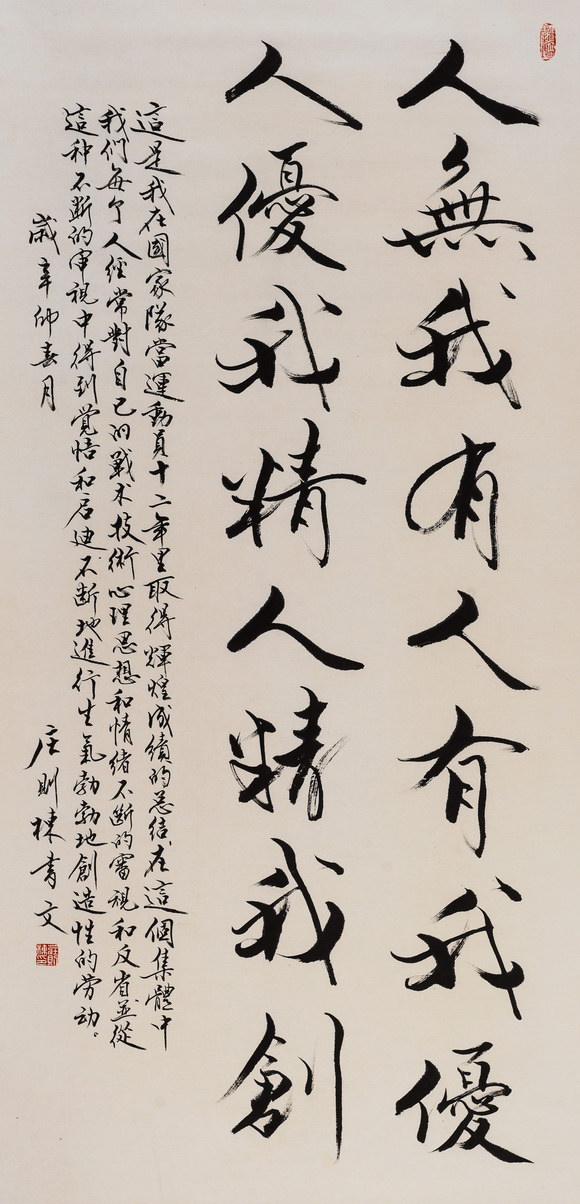 人無我有人有我優
人優我精人精我創
這是我在國家隊當運動員十二年里取得輝煌成績的总结在這個集體中
我们每个人經常對自己的戰术技術心理思想和情绪不断的審視和反省並從
這种不断的审視中得到覚悟和启迪不断地進行生氣勃勃地創造性的劳动。
歲辛卯春月
庄则棟書文